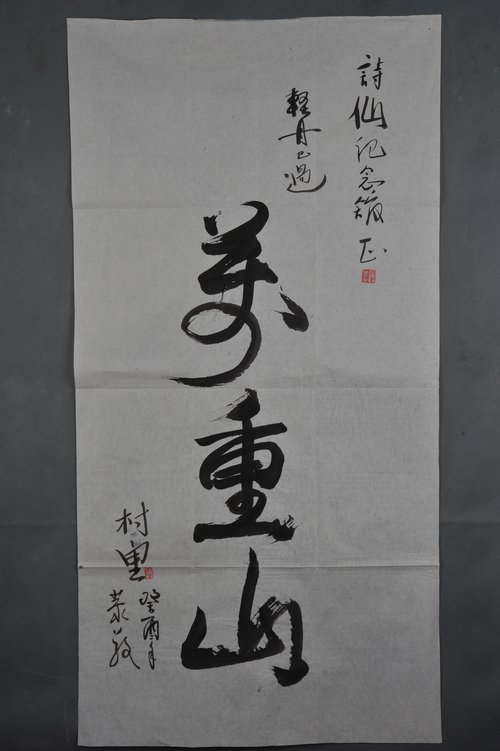 詩仙記念館 正
軽舟已過
萬重山
癸酉年
村里